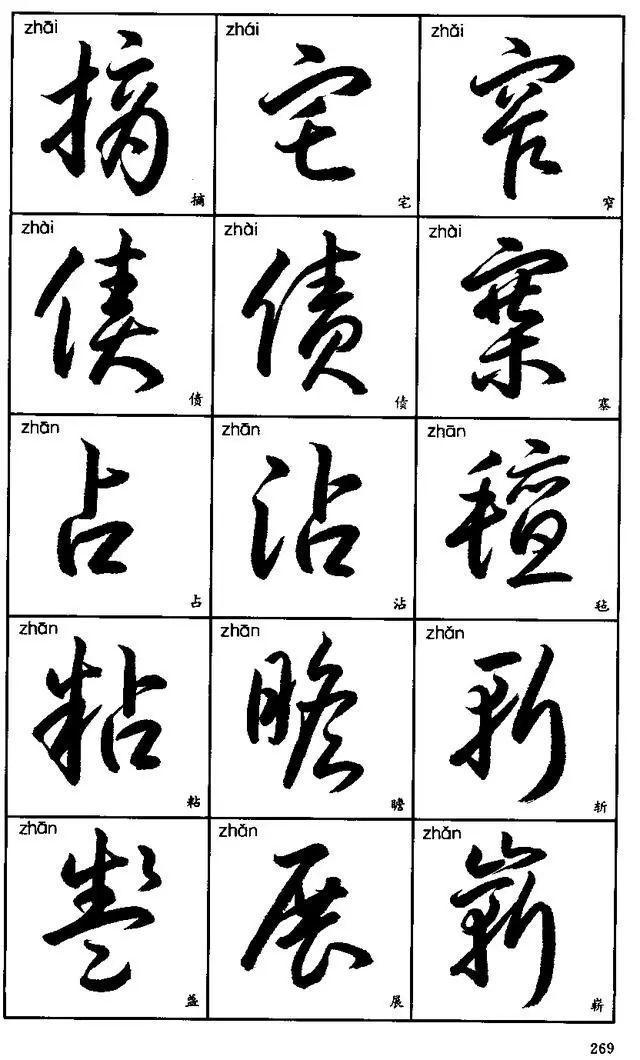 zhāi zhái zhǎi
摘 宅 窄
摘 宅 窄
zhài zhài zhài
债 債 寨
债 债 寨
zhān zhān zhān
占 沾 氈
占 沾 毡
zhān zhān zhǎn
粘 瞻 斩
粘 瞻 斩
zhǎn zhǎn zhǎn
盏 展 崭
盏 展 崭
269